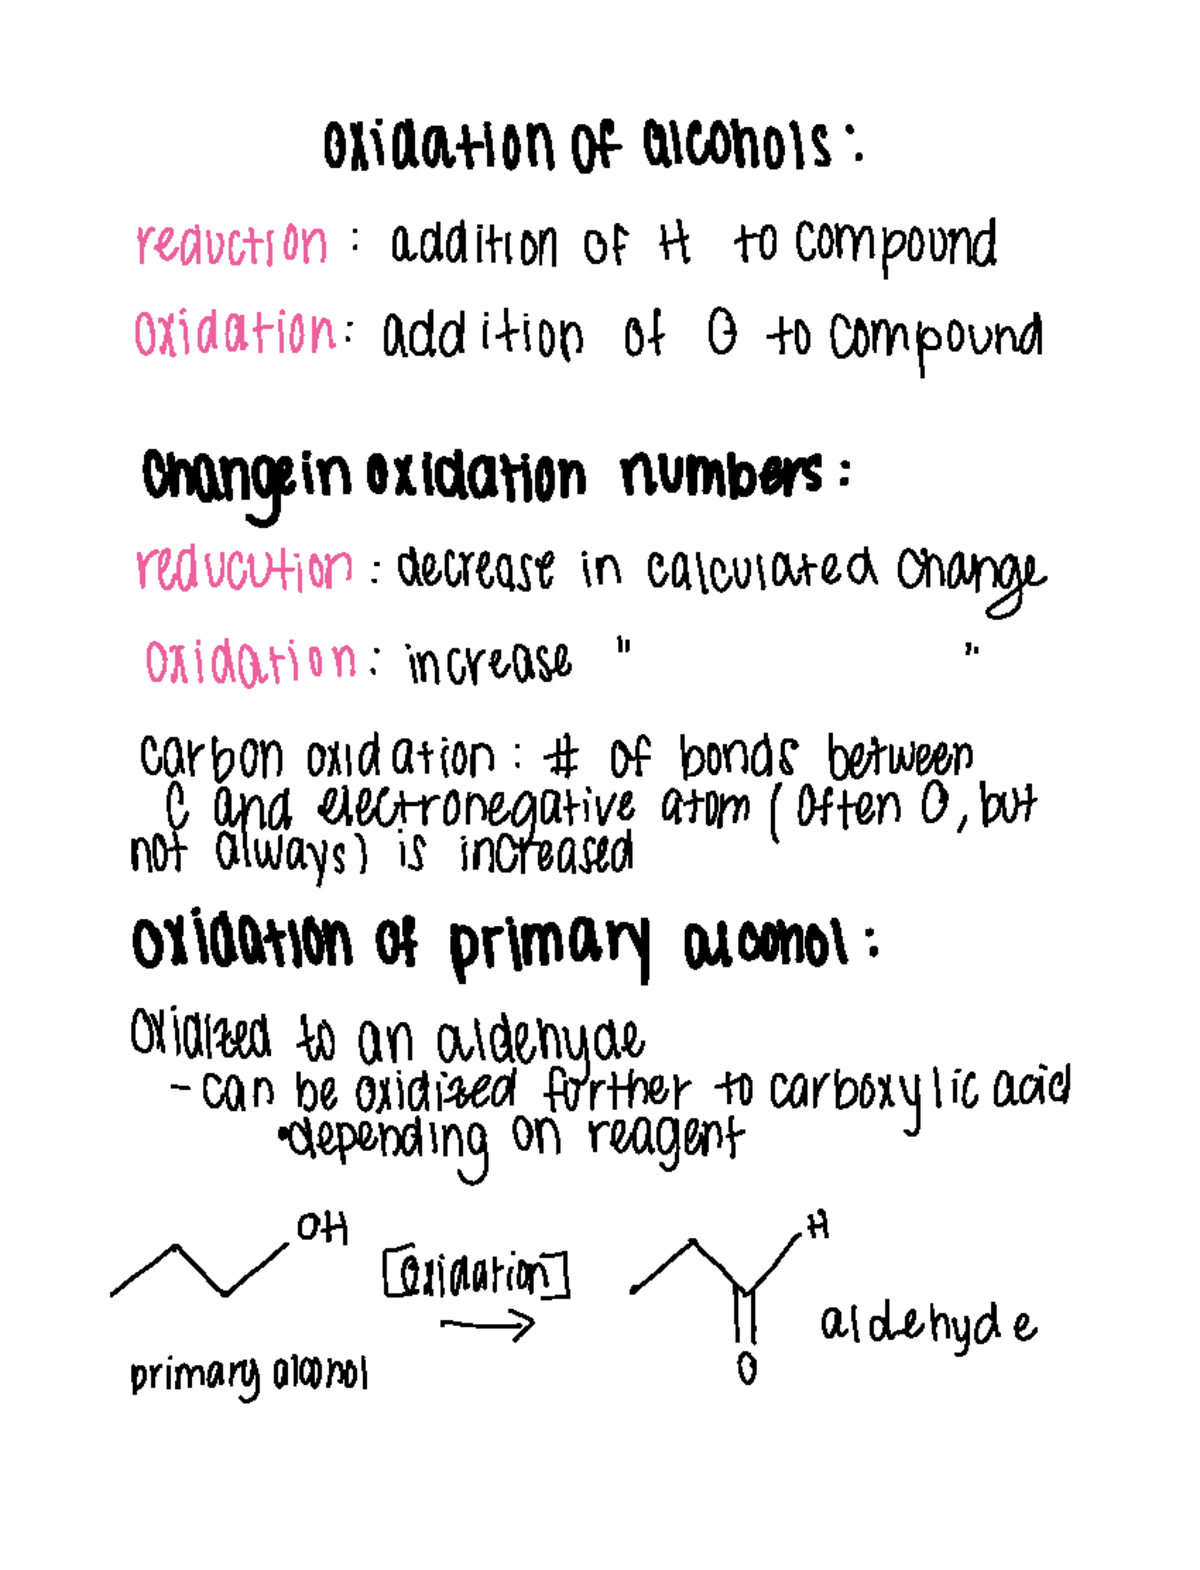 oxidation of alcohols:
reduction: addition of H to compound
oxidation: addition of O to compound
change in oxidation numbers:
reducution: decrease in calculated change
oxidation: increase " "
carbon oxidation: # of bonds between
C and electronegative atom (often O, but
not always) is increased
oxidation of primary alcohol:
oxidized to an aldehyde
- can be oxidized further to carboxylic acid
•depending on reagent
OH
[oxidation]
H
O
aldehyde
primary alcohol